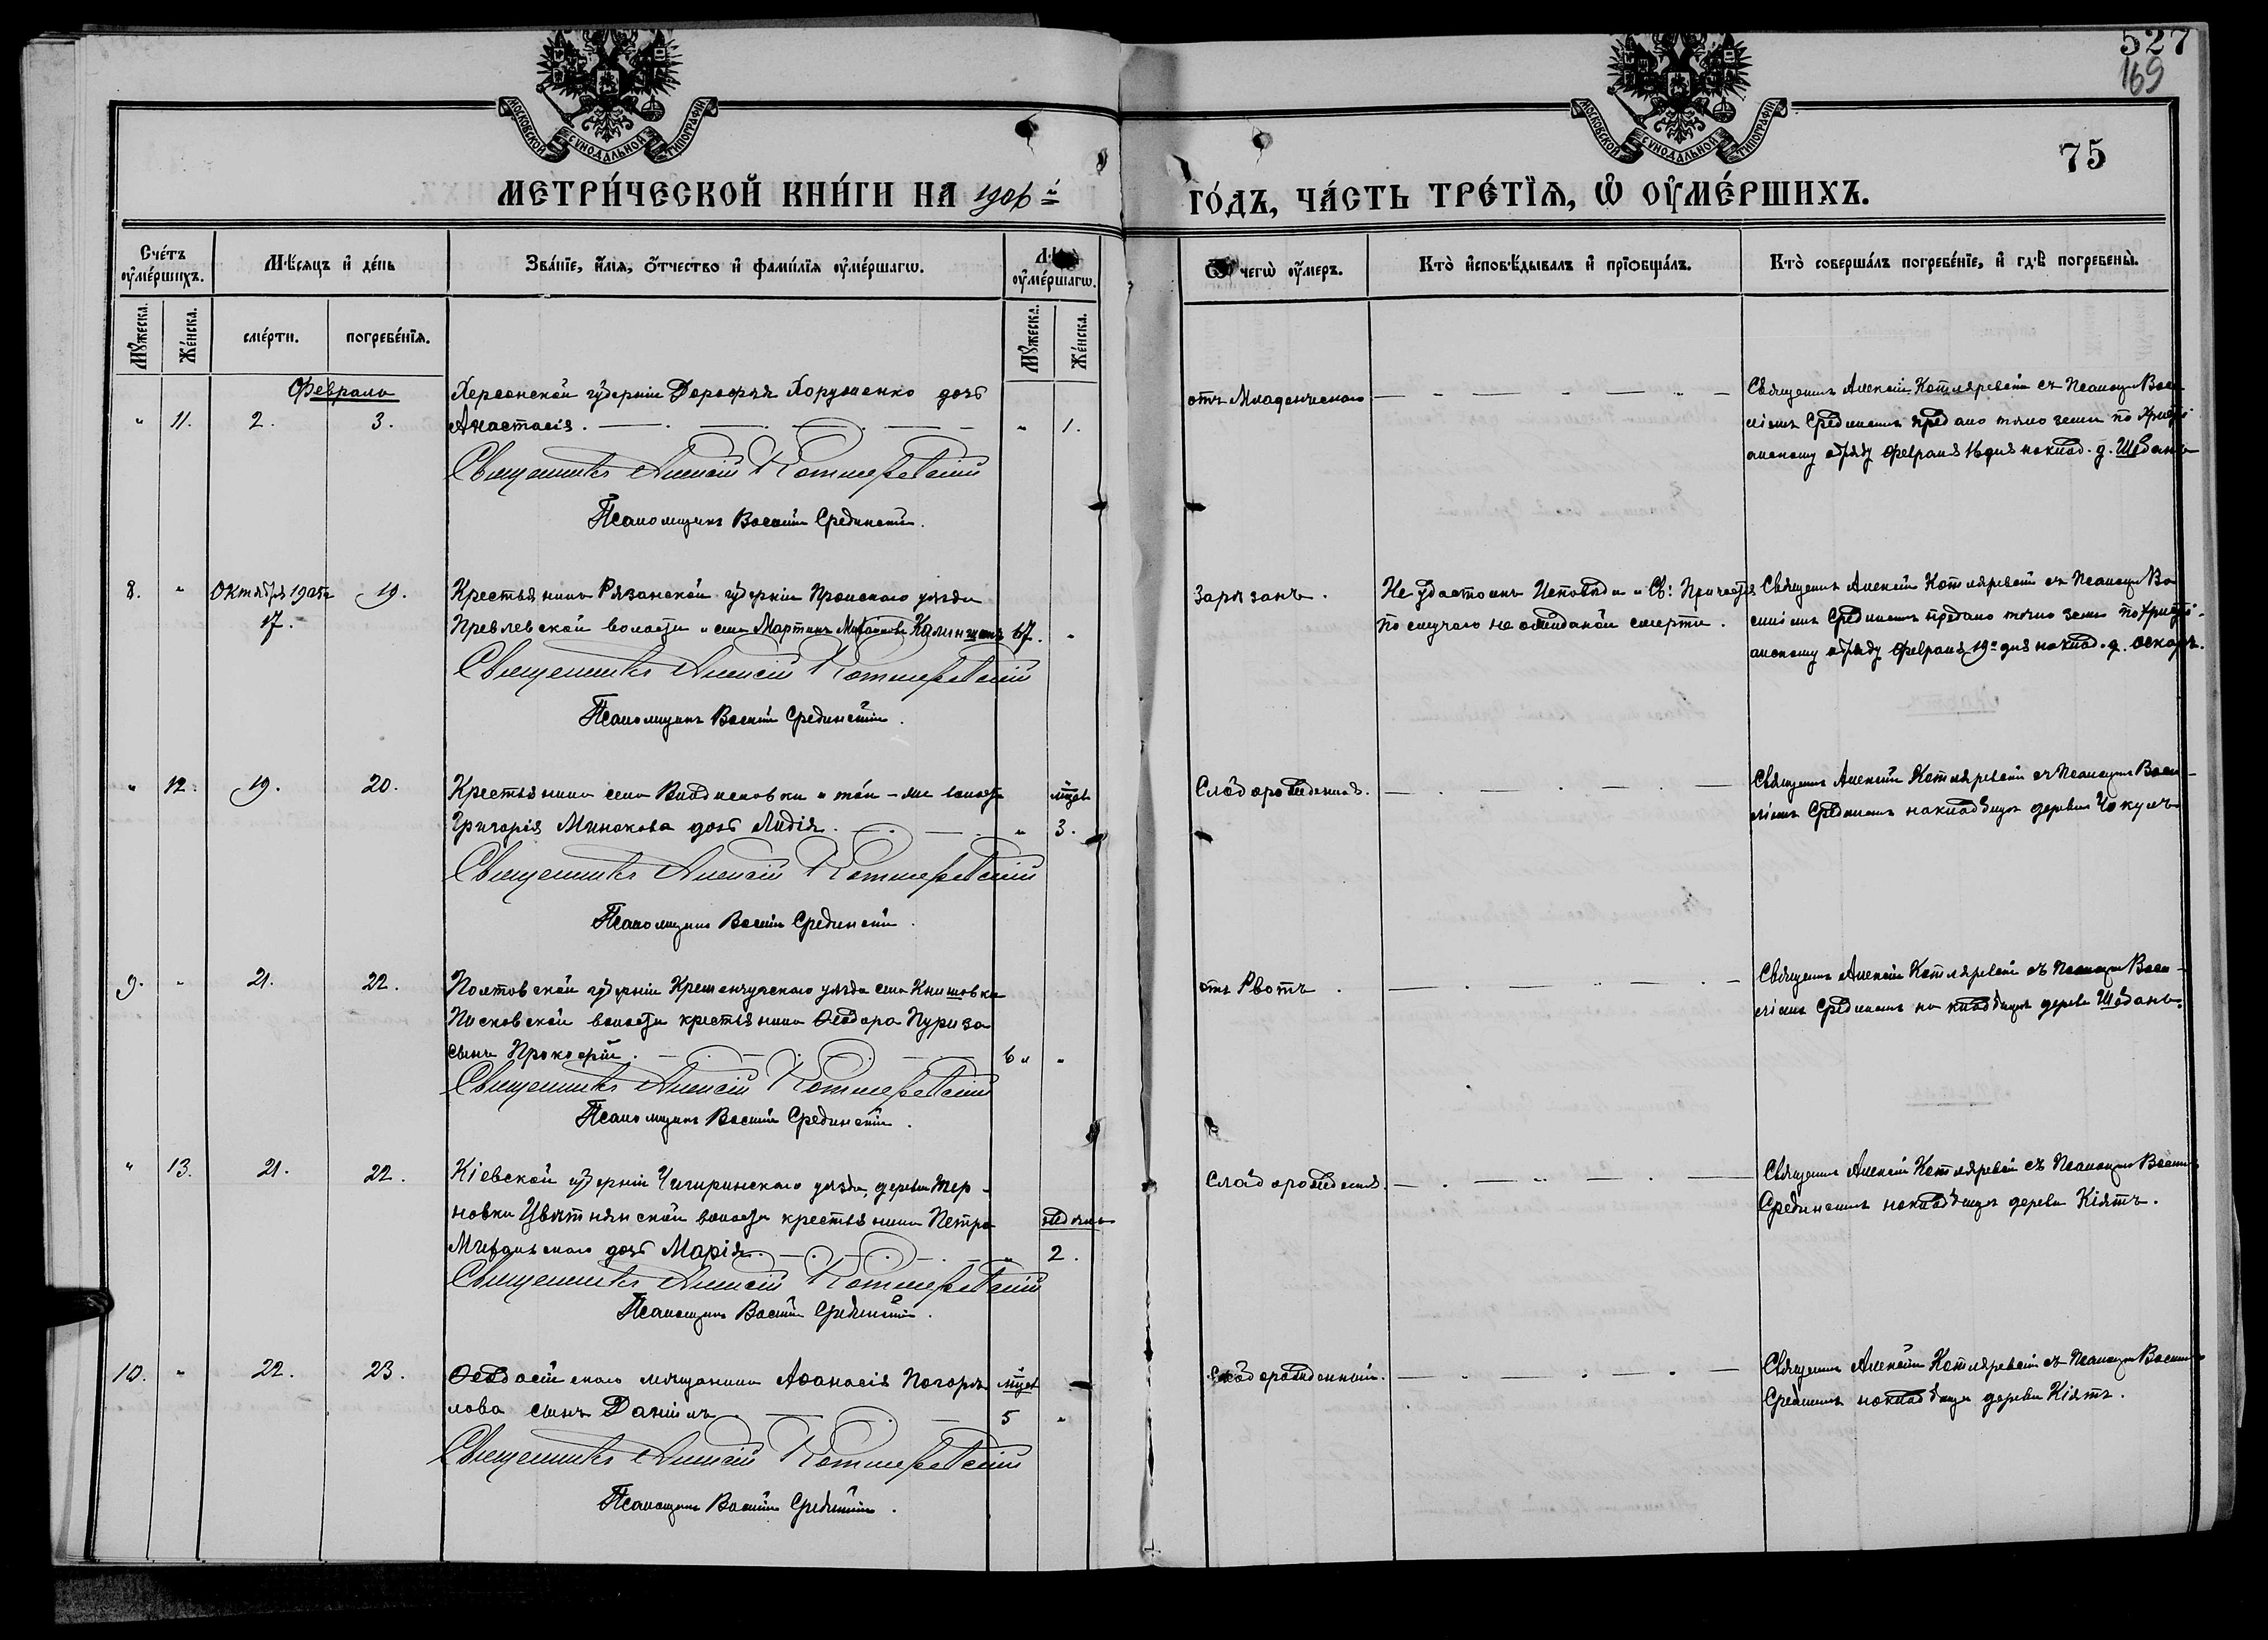 527
169
75
МОСКОВСКОЙ СУНОДАЛЬНОЙ ТИПОГРАФІИ
МОСКОВСКОЙ СУНОДАЛЬНОЙ ТИПОГРАФІИ
МЕТРИ́ЧЕСКОЙ КНИ́ГИ НА 1906 й
ГО́ДЪ, ЧА́СТЬ ТРЕ́ТЇѦ, Ѡ ОУМЕ́РШИХЪ.
Сче́тъ оуме́ршихъ.
Мѣсяцъ и де́нь
Зва́нїе, и́мѧ, о́тчество и фами́лїѧ оуме́ршагѡ.
оуме́ршагѡ.
Ѿ чегѡ̀ оу́меръ.
Кто̀ исповѣ́дывалъ и прїѡбща́лъ.
Кто̀ соверша́лъ погребе́нїе, и гдѣ̀ погребены̀.
Мꙋжеска.
Же́нска.
сме́рти.
погребе́нїѧ.
Мꙋжеска.
Же́нска.
Февраль
" 11. 2. 3.
Херсонской губерніи Дорофея Хорушенко дочь
Анастасія. " 1.
Священникъ Алексій Котляревскій
Псаломщикъ Василій Срединскій.
отъ Младенческаго
Священ. Алексій Котляревскій съ Псаломщ. Васи
ліемъ Срединскимъ предано тѣло земли по христі
анскому обряду Февраля 16 дня на клад. д. Шобань
8. " Октября 1905 г. 19.
17.
Крестьянинъ Рязанской губерніи Пронскаго уѣзда
Превлевской волости и села Мартинъ Калинценъ 67. "
Священникъ Алексій Котляревскій
Псаломщикъ Василій Срединскій.
Зарѣзанъ.
Не удостоинъ Исповѣди и Св: Причастія
по случаю не ожиданой смерти.
Священ. Алексій Котляревскій съ Псаломщ. Ва
силіемъ Срединскимъ предано тѣло земли по христі-
анскому обряду Февраля 19го дня на клад. д. Оскоръ.
" 12. 19. 20.
Крестьянина села Владиславки и той-же волости мѣсяц.
Григорія Минакова дочь Лидія. " 3.
Священникъ Алексій Котляревскій
Псаломщикъ Василій Срединскій.
Слаборожденія.
Священ. Алексій Котляревскій съ Псаломщ. Васи-
ліемъ Срединскимъ на кладбищѣ деревни Чокулъ
9. " 21. 22.
Полтовской губерніи Кременчугскаго уѣзда села Книшовки
Писковской волости крестьянина Ѳеодора Пуриза
сынъ Прокофій. 6 " "
Священникъ Алексій Котляревскій
Псаломщикъ Василій Срединскій.
отъ Рвотъ.
Священ. Алексій Котляревскій съ Псаломщ. Васи-
ліемъ Срединскимъ на кладбищѣ деревни Шобань.
" 13. 21. 22.
Кіевской губерніи Чигиринскаго уѣзда, деревни Тер-
новки Цвѣтнянской волости крестьянина Петра недѣль
дочь Марія. " 2.
Священникъ Алексій Котляревскій
Псаломщикъ Василій Срединскій.
Слаборожденія.
Священ. Алексій Котляревскій съ Псаломщ. Василіемъ
Срединскимъ на кладбищѣ деревни Кіятъ.
10. " 22. 23.
Ѳеодосійскаго мѣщанина Аѳанасія Погорѣ мѣсяц.
лова сынъ Даніилъ. 5 "
Священникъ Алексій Котляревскій
Псаломщикъ Василій Срединскій.
Слаборожденный.
Священ. Алексій Котляревскій съ Псаломщ. Василіемъ
Срединскимъ на кладбищѣ деревни Кіятъ.